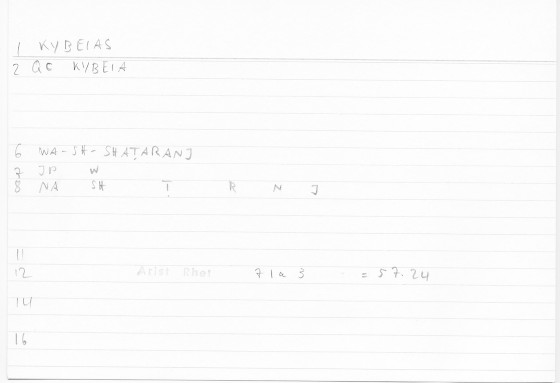 1 KYBEIAS
2 QC KYBEIA
6 WA-SH-SHAṬARANJ
7 JP W
8 NA SH Ṭ R N J
11
12 Arist Rhet 71a 3 = 57.24
14
16